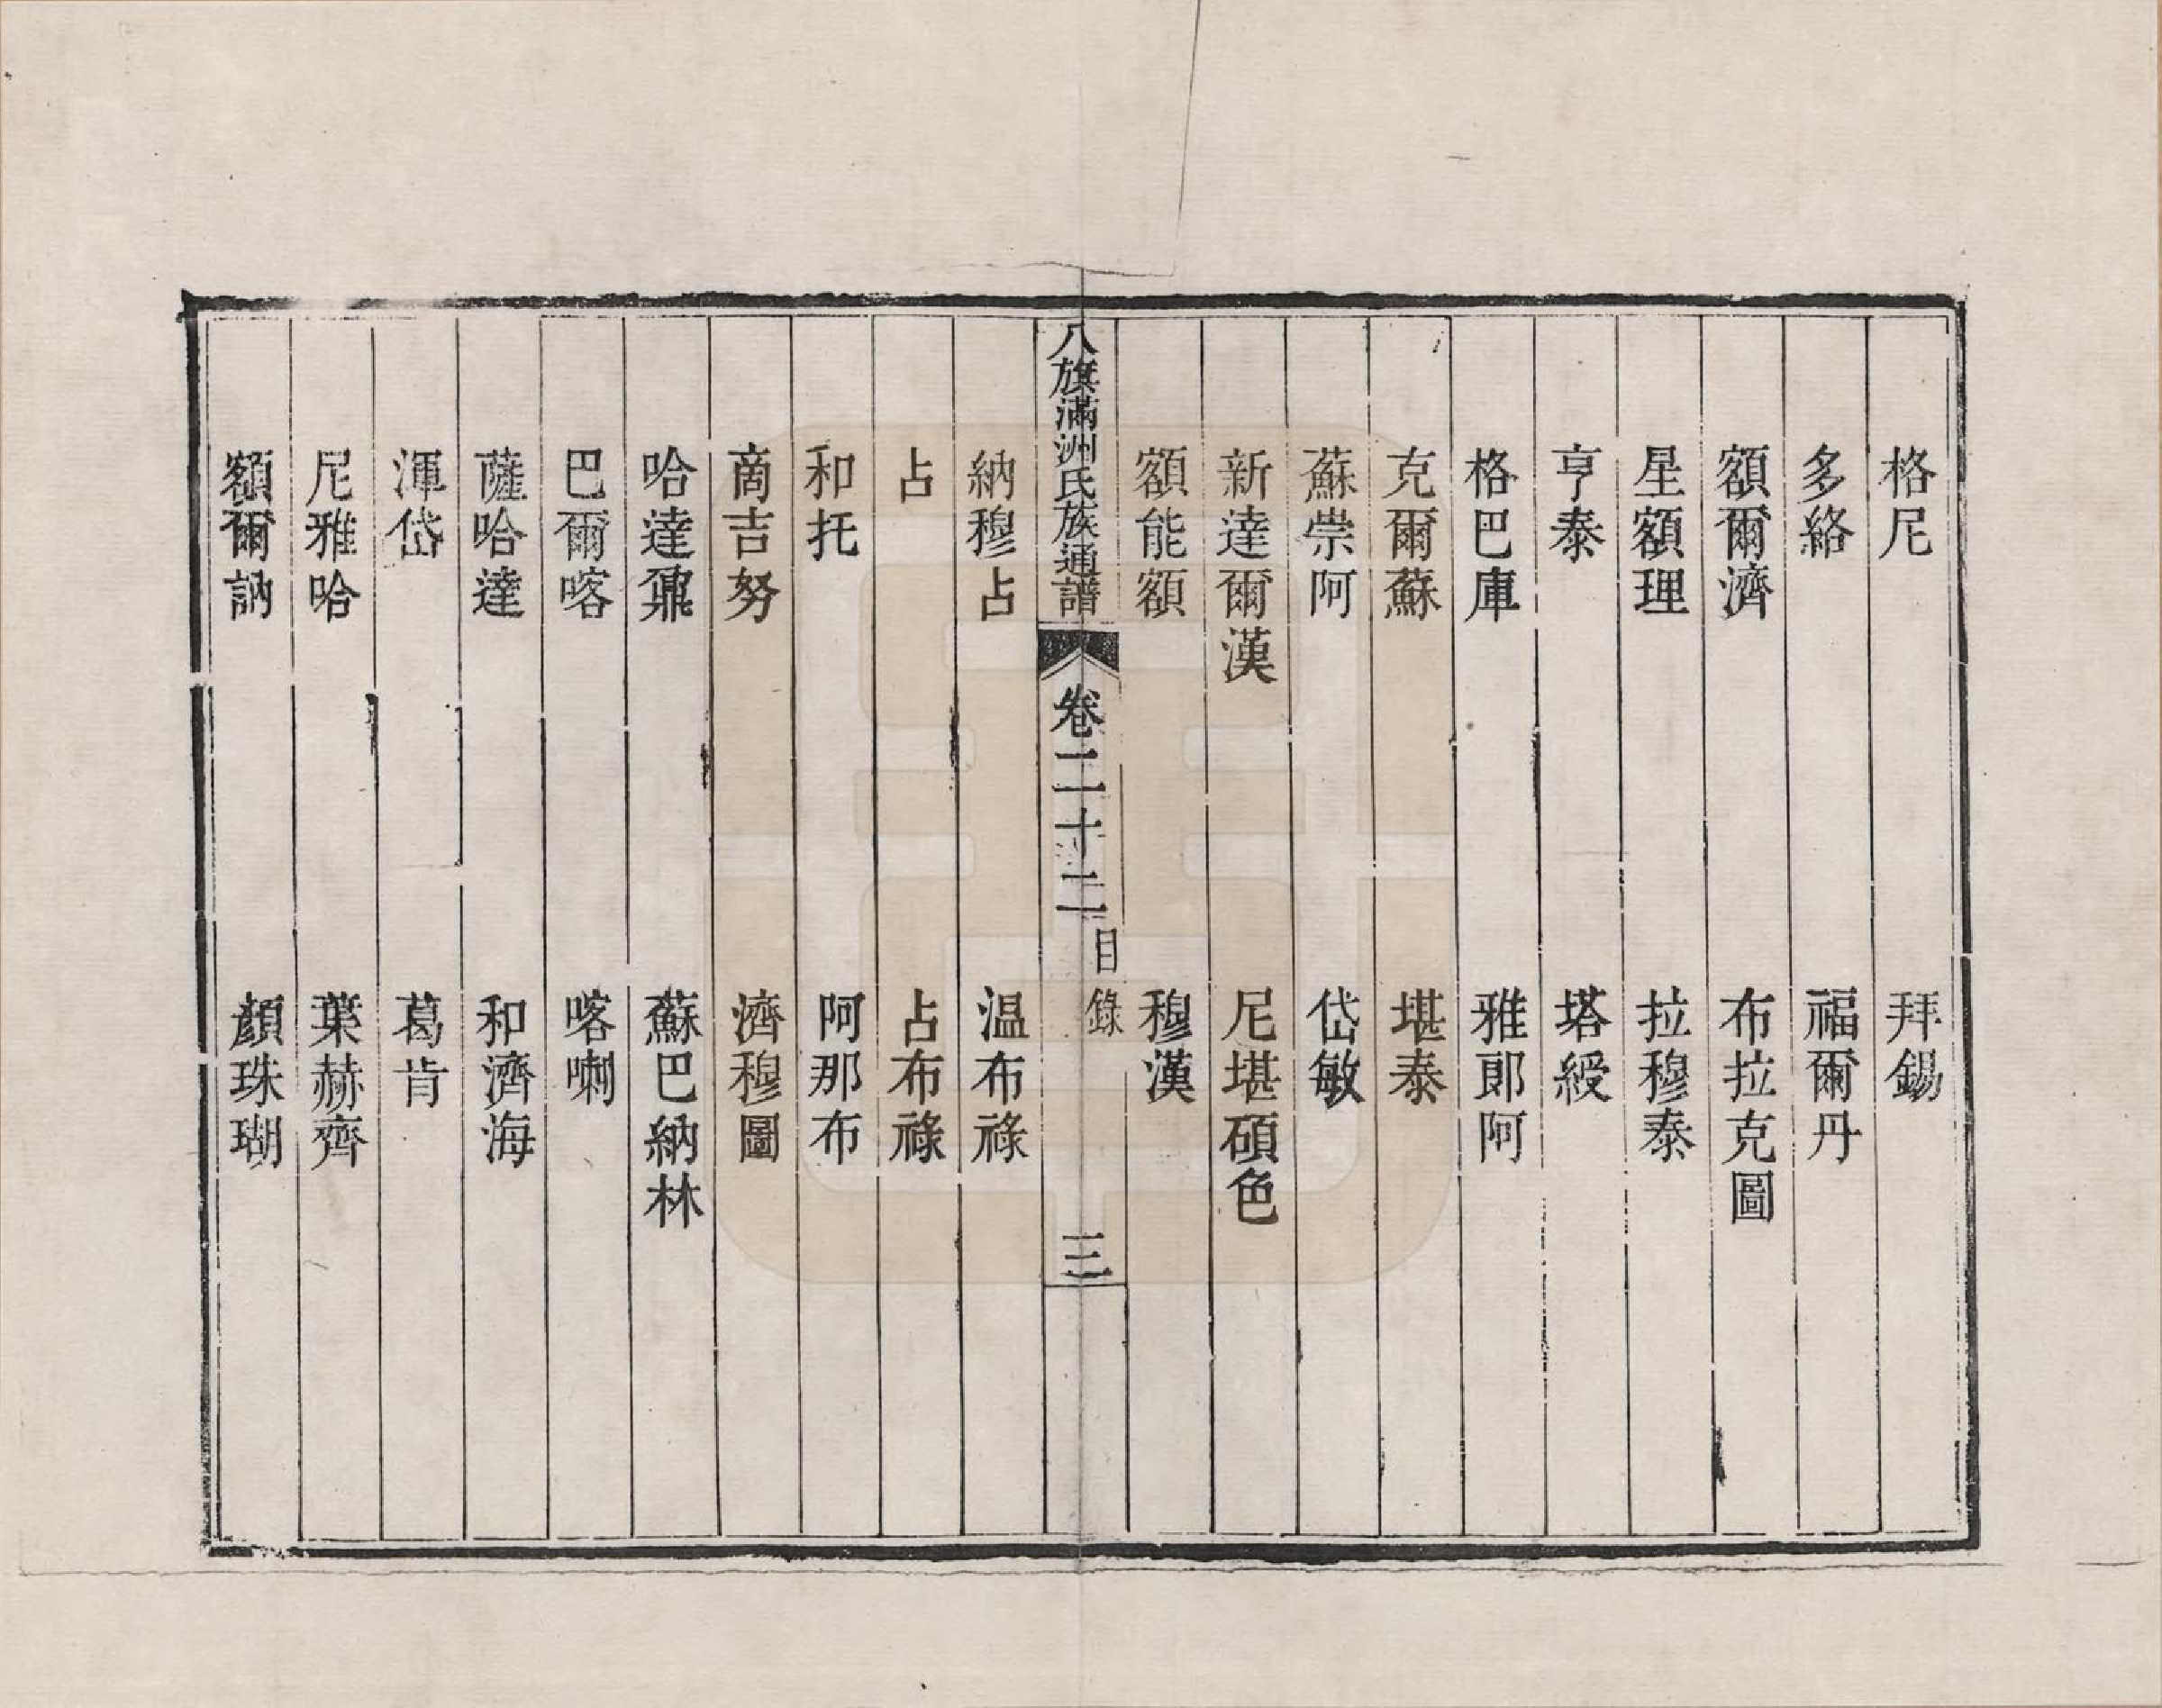 格尼　拜錫
多絡　福爾丹
額爾濟　布拉克圖
星額理　拉穆泰
亨泰　塔綬
格巴庫　雅郎阿
克爾蘇　堪泰
蘇崇阿　岱敏
新達爾漢　尼堪碩色
額能額　穆漢
八旗滿洲氏族通譜　卷二十二　目錄　三
納穆占　温布祿
占　占布祿
和托　阿那布
商吉努　濟穆圖
哈達鼐　蘇巴納林
巴爾喀　喀喇
薩哈達　和濟海
渾岱　葛肯
尼雅哈　葉赫齊
額爾訥　顏珠瑚